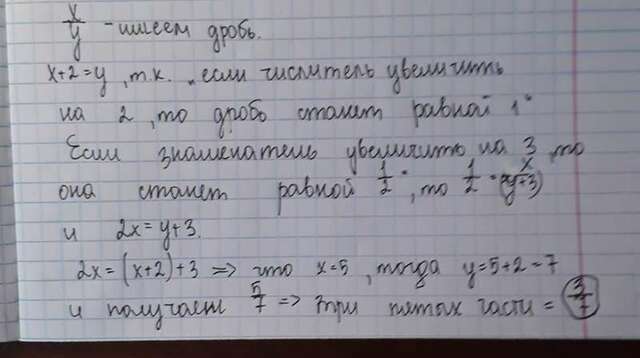 x/y - имеем дробь.
x+2=y, т.к. "если числитель увеличить
на 2, то дробь станет равной 1"
Если знаменатель увеличить на 3, то
она станет равной 1/2", то 1/2 = x/(y+3)
и 2x=y+3.
2x=(x+2)+3 => что x=5, тогда y=5+2=7
и получаем 5/7 => три пятых части = 3/7